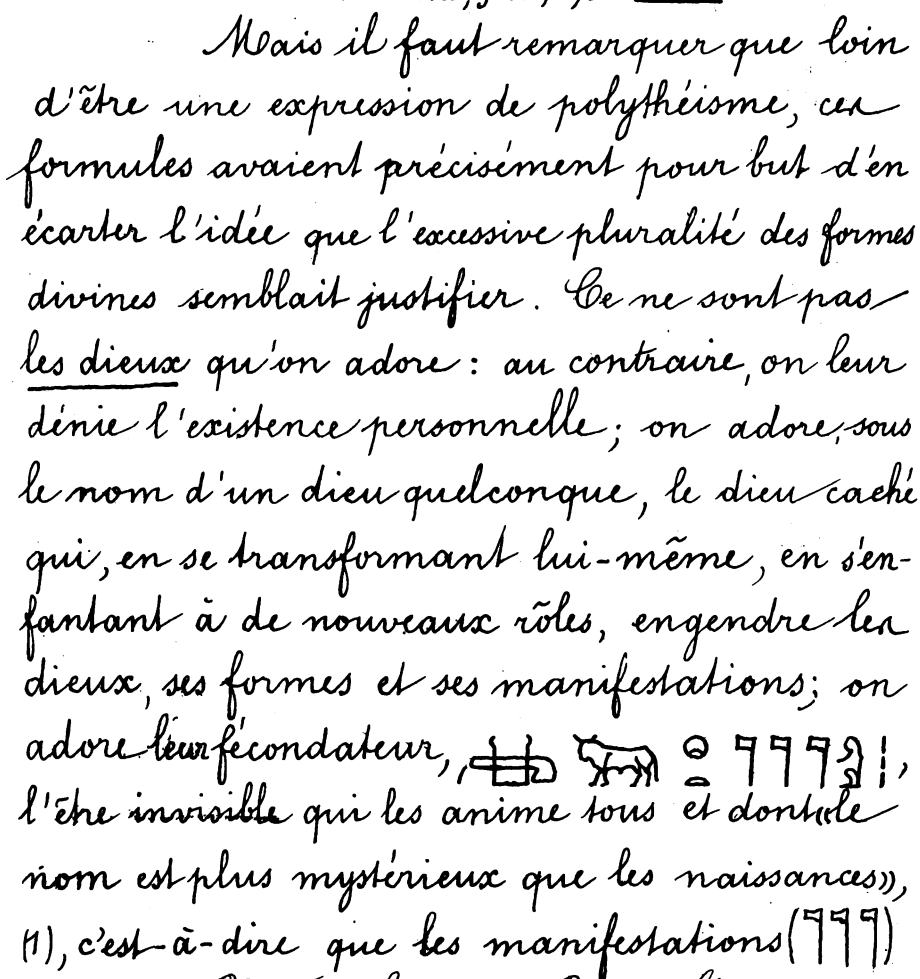 Mais il faut remarquer que loin
d'être une expression de polythéisme, ces
formules avaient précisément pour but d'en
écarter l'idée que l'excessive pluralité des formes
divines semblait justifier. Ce ne sont pas
les dieux qu'on adore : au contraire, on leur
dénie l'existence personnelle ; on adore, sous
le nom d'un dieu quelconque, le dieu caché
qui, en se transformant lui-même, en s'en-
fantant à de nouveaux rôles, engendre les
dieux, ses formes et ses manifestations; on
adore leur fécondateur, ,
l'être invisible qui les anime tous et dont «le
nom est plus mystérieux que les naissances»,
(1), c'est-à-dire que les manifestations (𓊹𓊹𓊹)